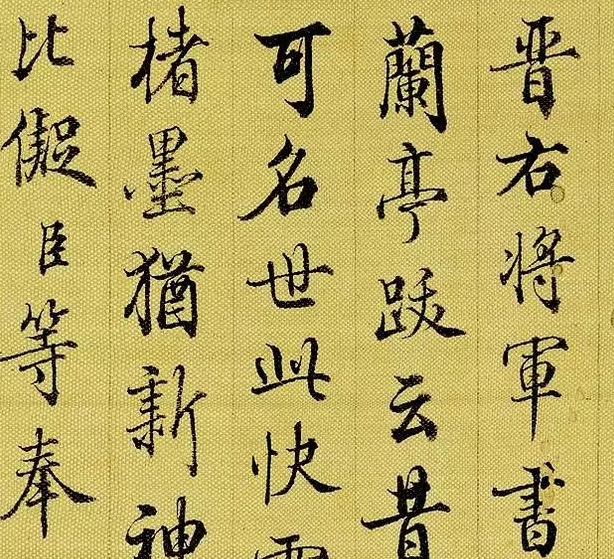 晉右將軍書
蘭亭跋云昔
可名世此快雪
楮墨猶新神
比儗臣等奉